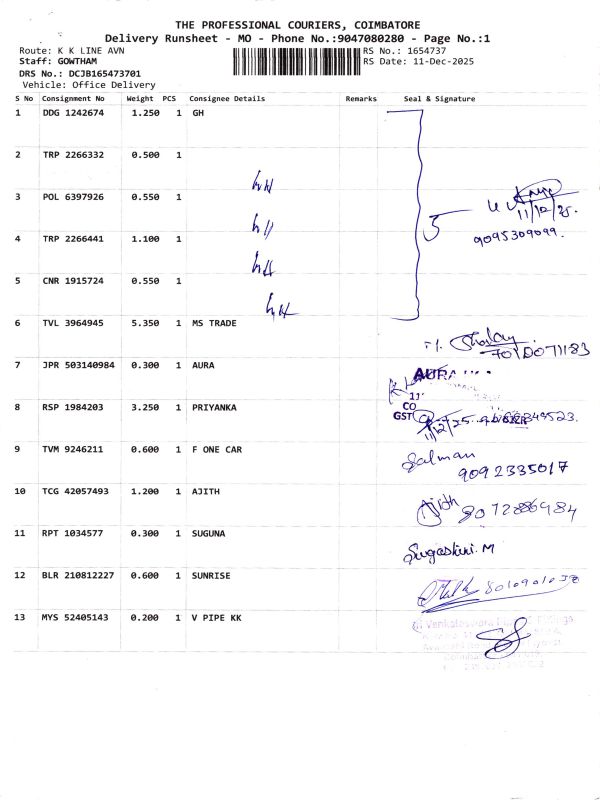 THE PROFESSIONAL COURIERS, COIMBATORE
Delivery Runsheet - MO - Phone No.:9047080280 - Page No.:1
Route: K K LINE AVN
RS No.: 1654737
Staff: GOWTHAM
RS Date: 11-Dec-2025
DRS No.: DCJB165473701
Vehicle: Office Delivery
S No Consignment No Weight PCS Consignee Details Remarks Seal & Signature
1 DDG 1242674 1.250 1 GH
2 TRP 2266332 0.500 1
3 POL 6397926 0.550 1
11/12/25.
4 TRP 2266441 1.100 1
9095309099.
5 CNR 1915724 0.550 1
6 TVL 3964945 5.350 1 MS TRADE
7 JPR 503140984 0.300 1 AURA
AURA
8 RSP 1984203 3.250 1 PRIYANKA
CO
GST
11/12/25
9 TVM 9246211 0.600 1 F ONE CAR
Salman
9092335017
10 TCG 42057493 1.200 1 AJITH
Ajith 8072286984
11 RPT 1034577 0.300 1 SUGUNA
Sugashini. M
12 BLR 210812227 0.600 1 SUNRISE
13 MYS 52405143 0.200 1 V PIPE KK
Venkateswara